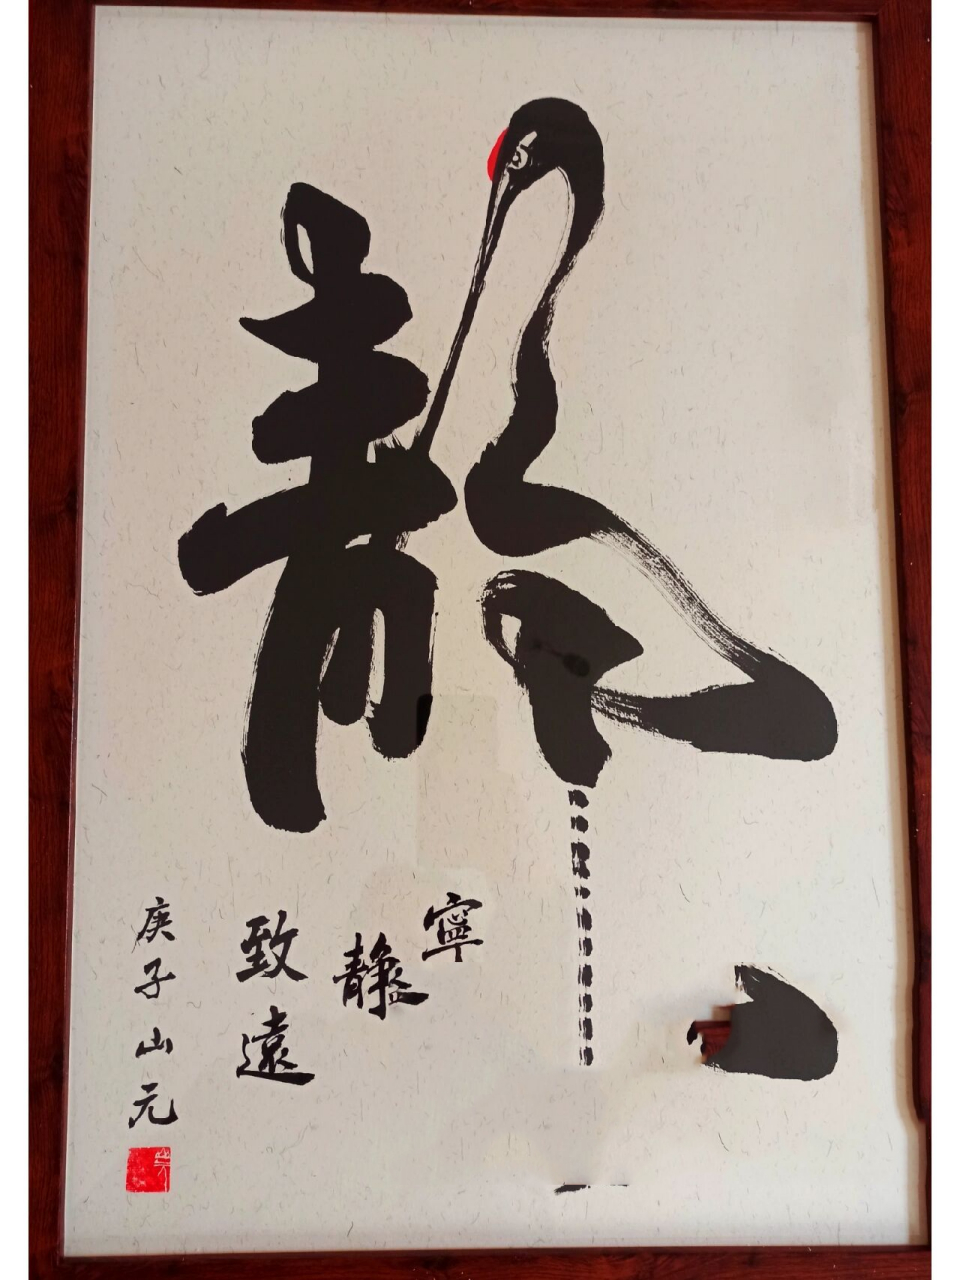 静
寧靜
致遠
庚子山元